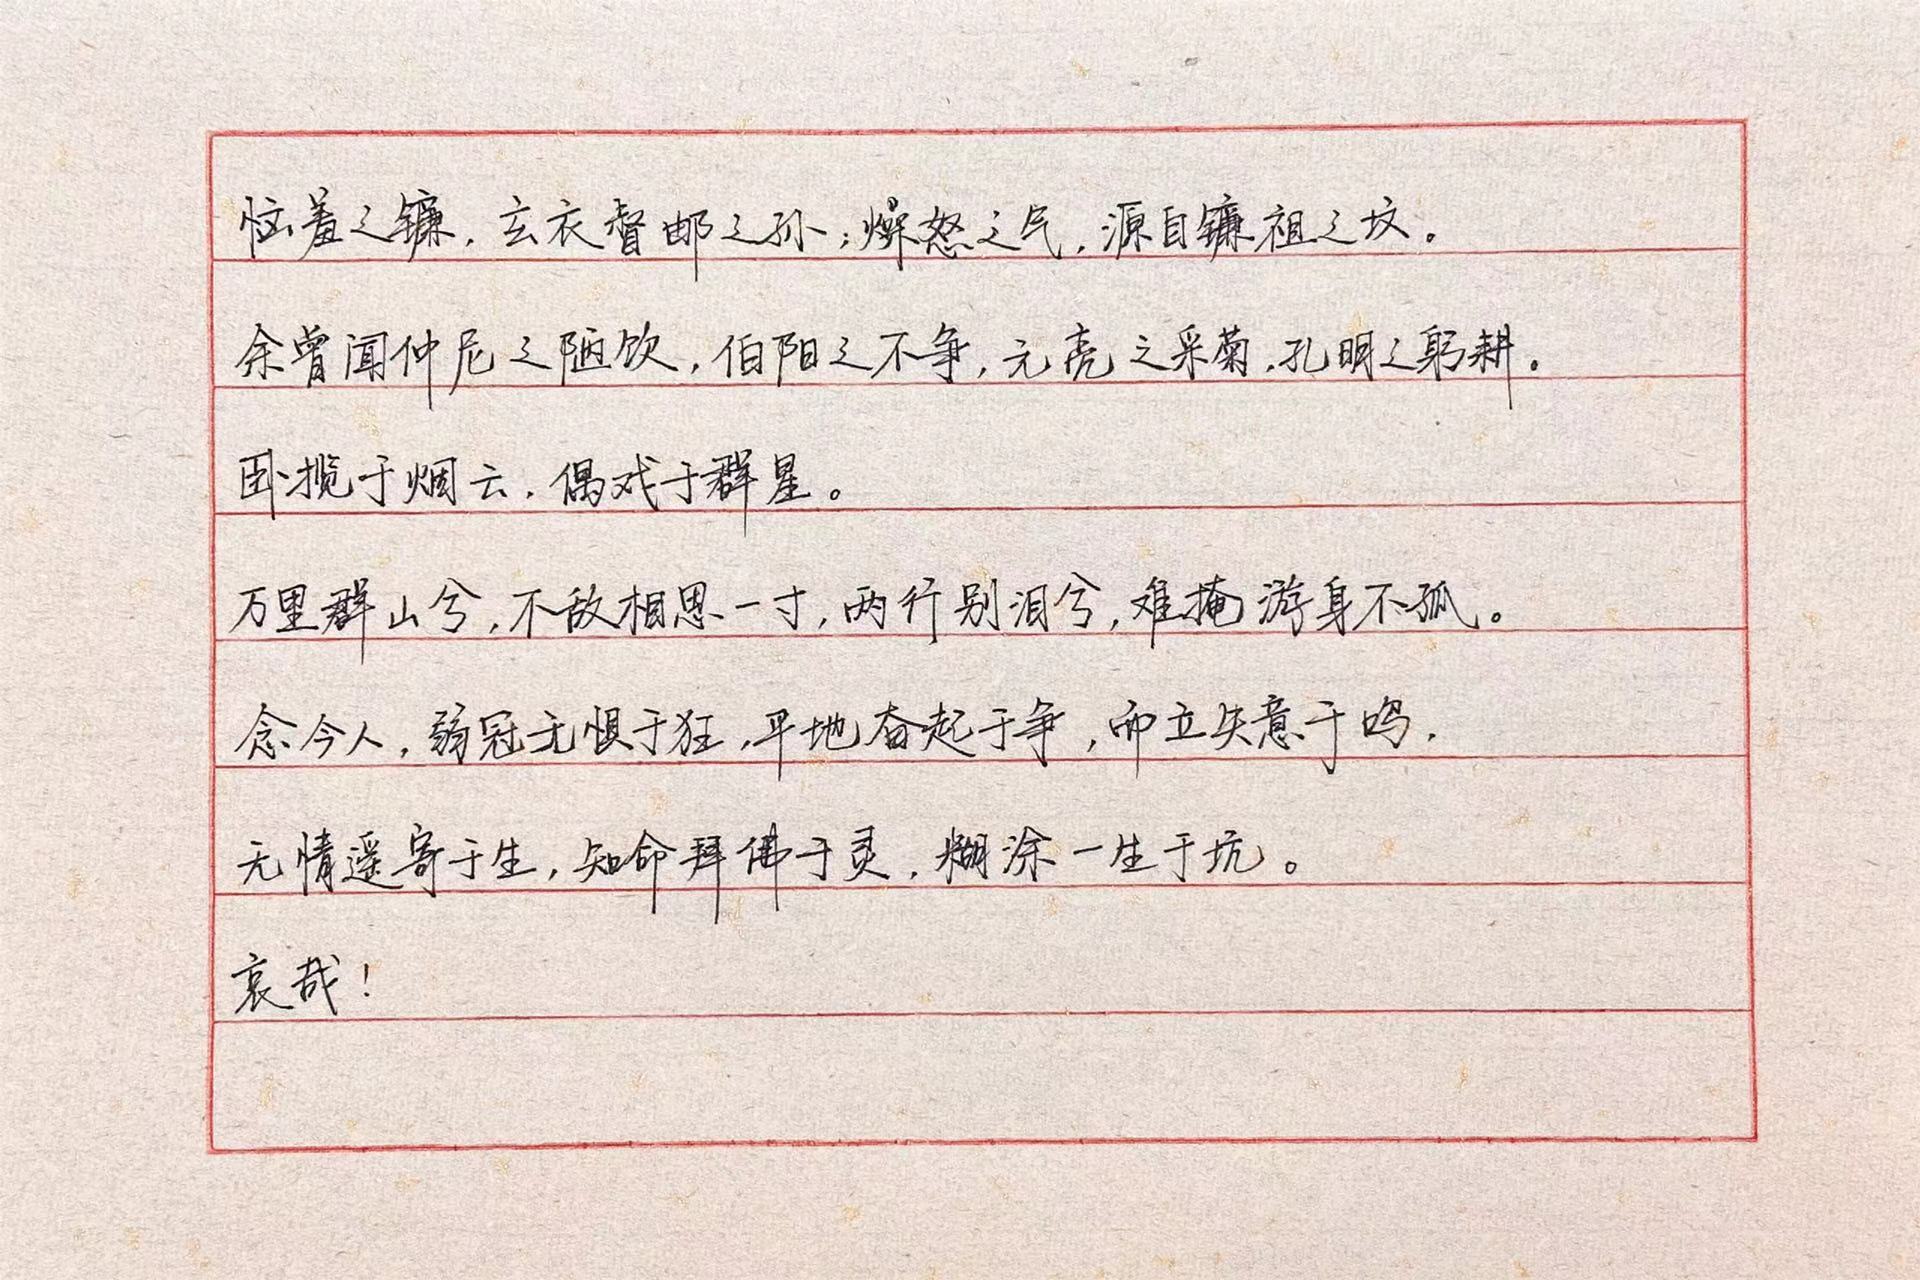 恼羞之镰，玄衣督邮之孙；燥怒之气，源自镰祖之坟。
余曾闻仲尼之陋饮，伯阳之不争，元亮之采菊，孔明之躬耕。
卧揽于烟云，偶戏于群星。
万里群山兮，不敌相思一寸，两行别泪兮，难掩游身不孤。
念今人，弱冠无惧于狂，平地奋起于争，而立失意于鸣，
无情遥寄于生，知命拜佛于灵，糊涂一生于坑。
哀哉！